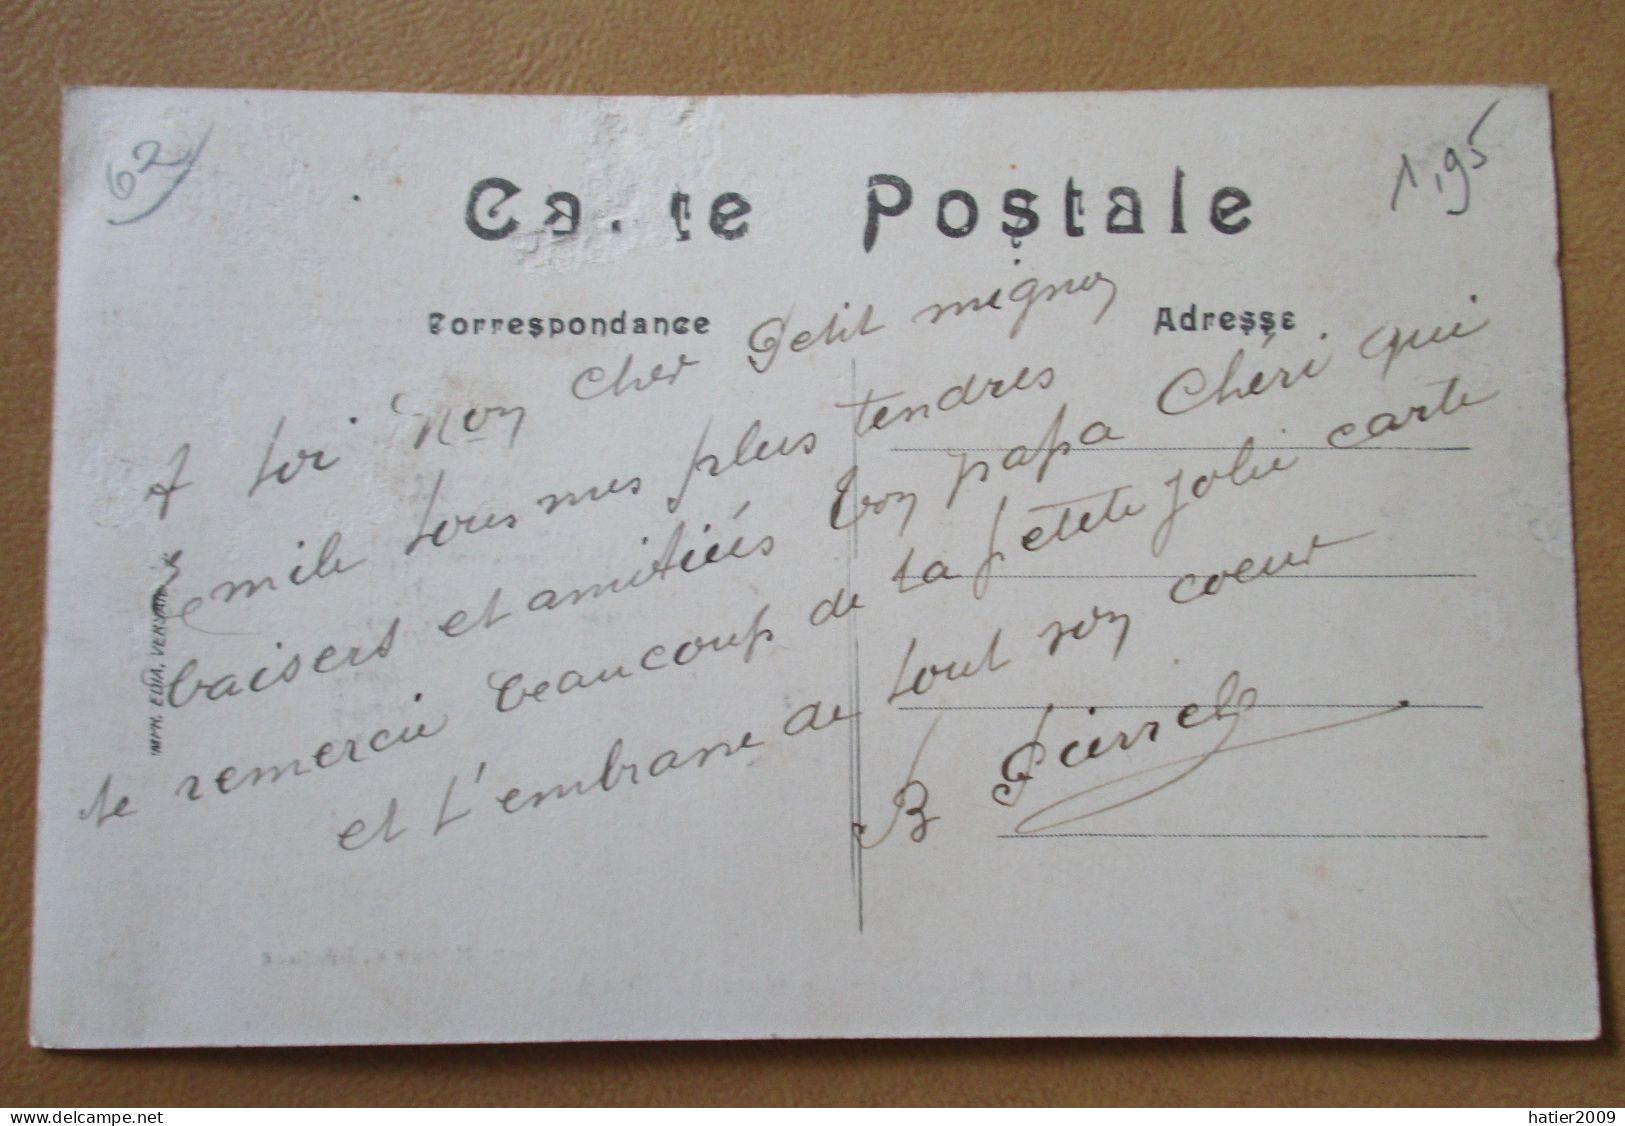 62
1,95
Carte Postale
Correspondance
Adresse
A toi mon cher Petit mignon
Emile tous mes plus tendres
baisers et amitiés ton papa Chéri qui
te remercie beaucoup de ta petete jolie carte
et t'embrasse de tout son coeur
B Pierre
IMPR. EDIA, VERSAILLES
delcampe.net
hatier2009